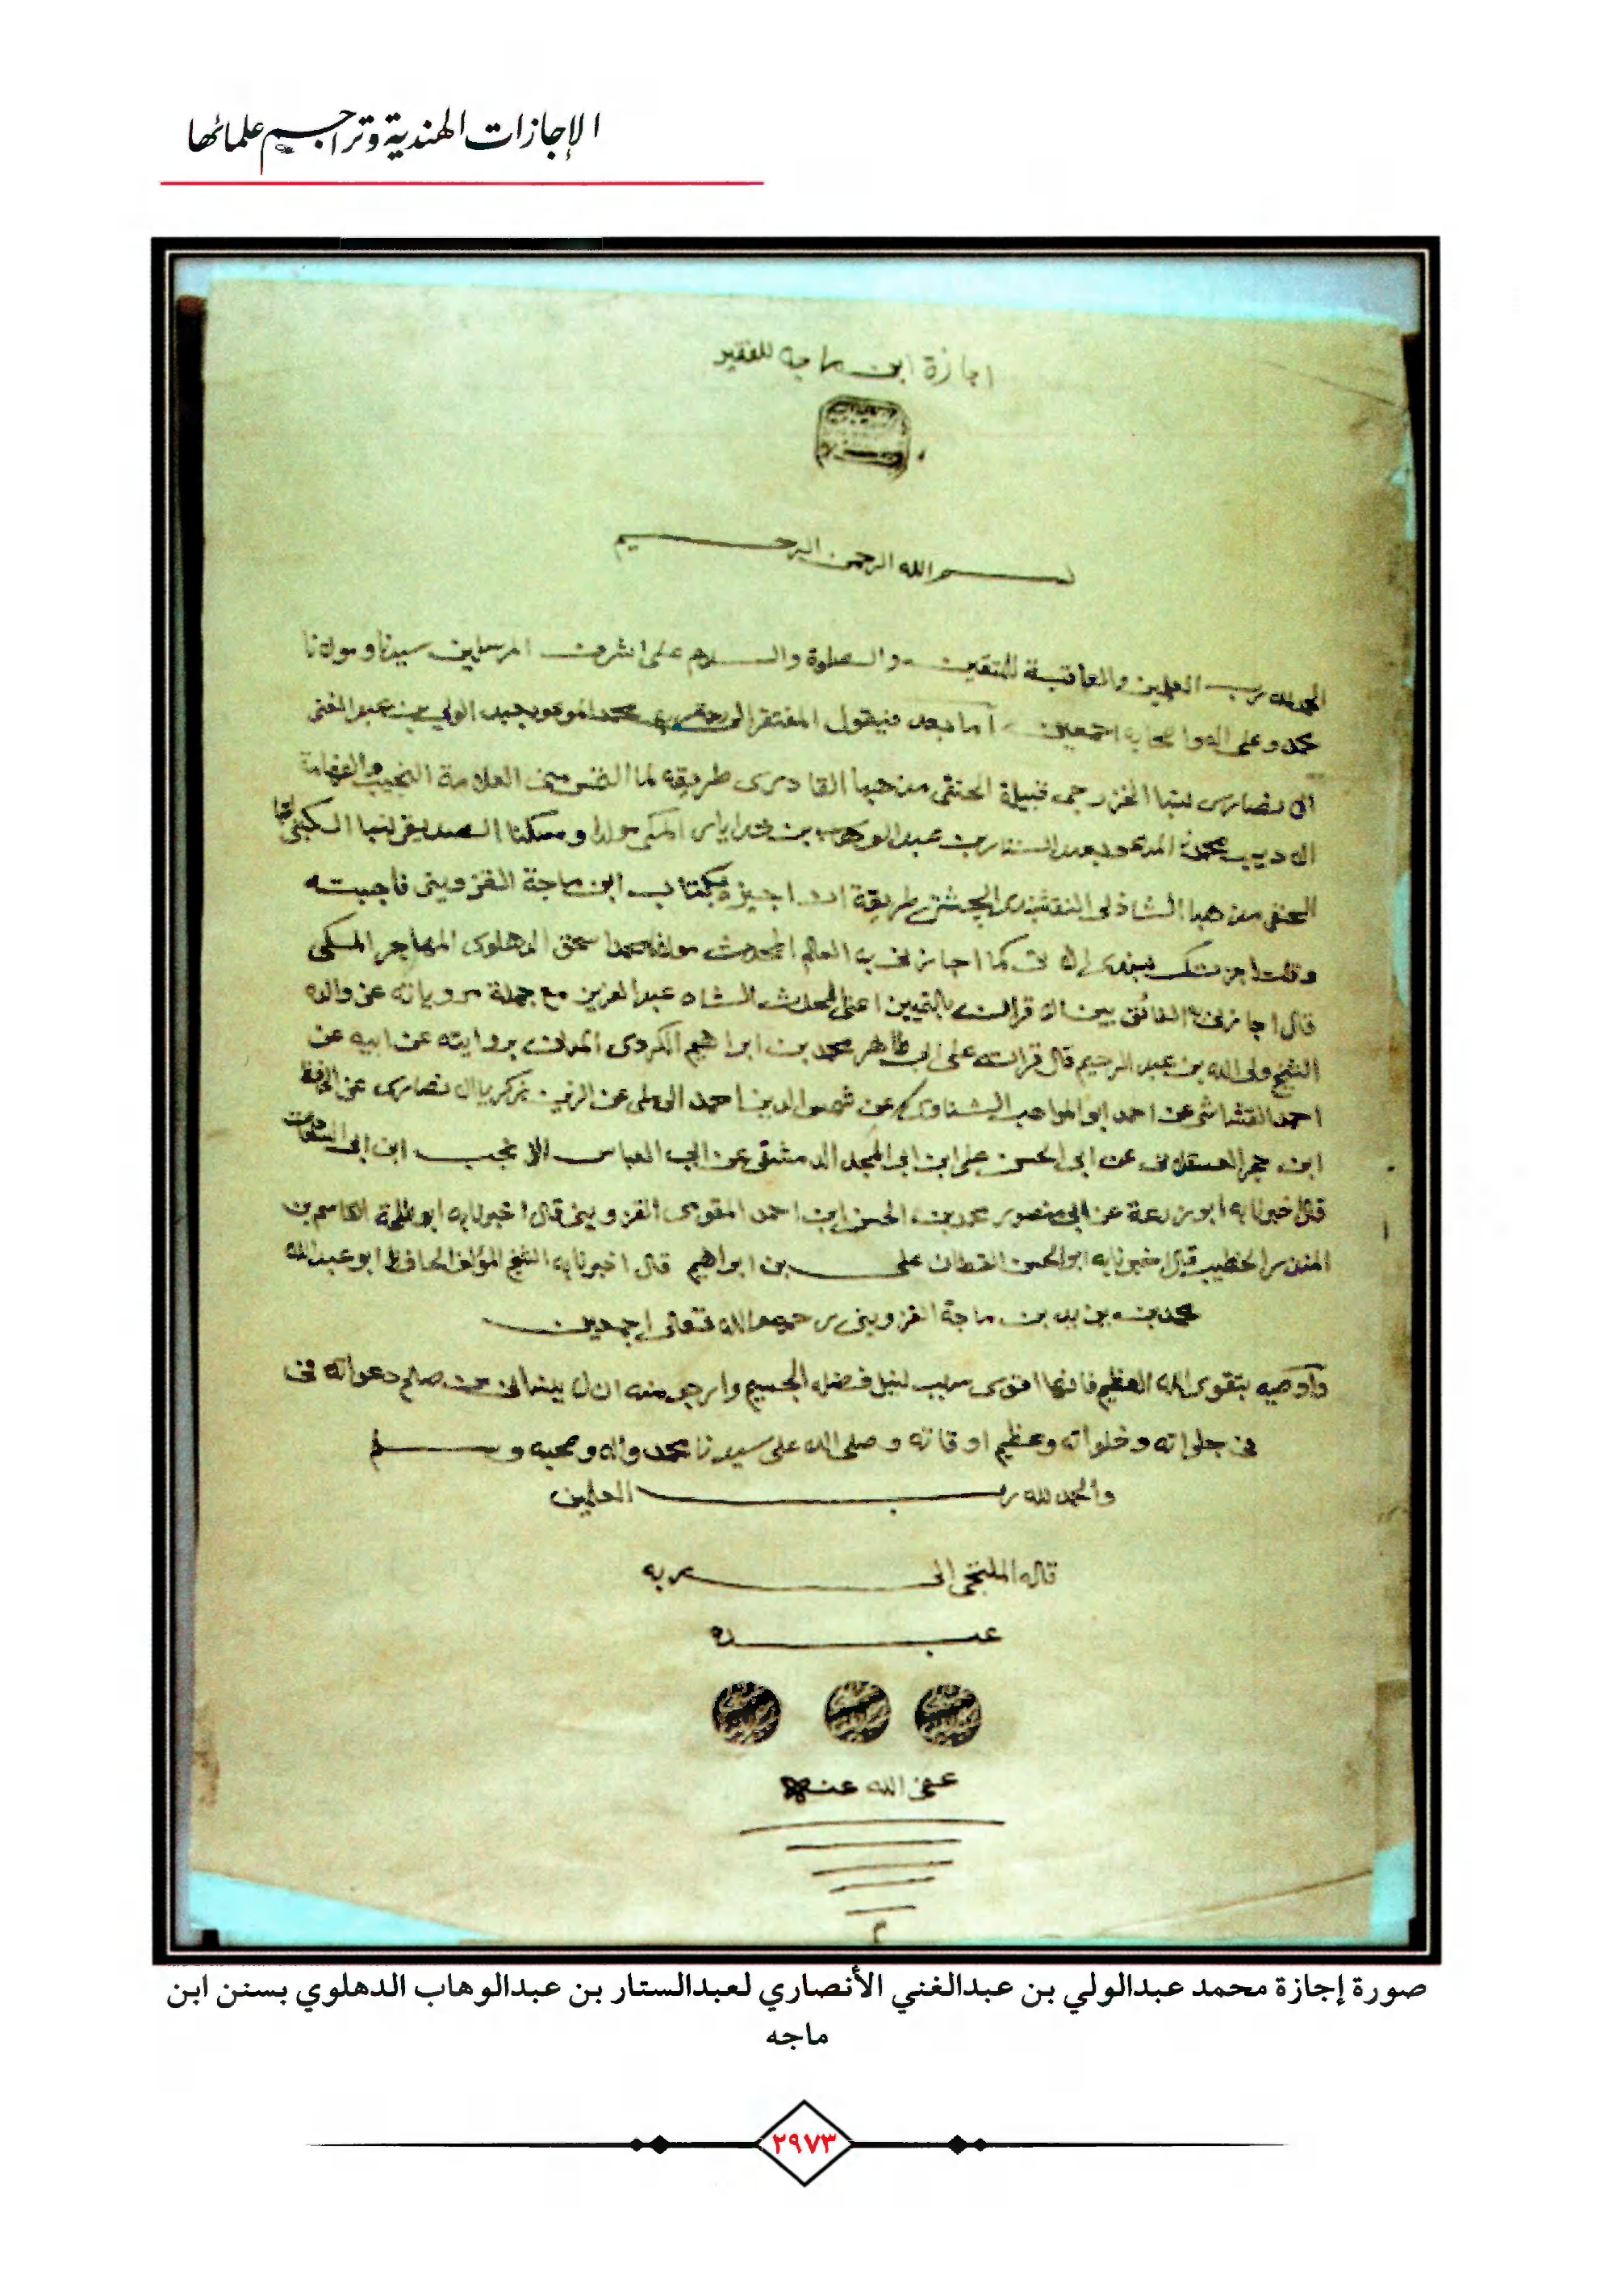 الإجازات الهندية وتراجم علمائها
اجازة ابن ماجه للفقير
بسم الله الرحمن الرحيم
الحمد لله رب العلمين والعاقبة للمتقين والصلوة والسلام على اشرف المرسلين سيدنا ومولانا
محمد وعلى اله واصحابه اجمعين اما بعد فيقول المفتقر الى محمد المدعو بعبد الولي بن عبد الغني
الانصارى نسبا الخزرجى قبيلة الحنفى مذهبا القادرى طريقة لما التمس منى العلامة النجيب والفهامة
الاديب محمد المدعو بعبد الستار بن عبد الوهاب بن خدايار المكى مولدا ومسكنا الصديقى نسبا الكتبى
الحنفى مذهبا الشاذلى النقشبندى الچشتى طريقة ان اجيزه بكتاب ابن ماجة القزوينى فاجبته
وقلت اجزتك كما اجازنى به العالم المحدث مولانا محمد اسحق الدهلوى المهاجر المكى
قال اجازنى الفائق بين الاقران بالتميين اعنى المحدث الشاه عبد العزيز مع جملة مروياته عن والده
الشيخ ولى الله بن عبد الرحيم قال قراته على ابى طاهر محمد بن ابراهيم الكردى المدنى بروايته عن ابيه عن
احمد القشاشى عن احمد ابو المواهب الشناوى عن شمس الدين احمد الرملى عن الزين زكريا الانصارى عن الحافظ
ابن حجر العسقلانى عن ابى الحسن على ابن ابى المجد الدمشقى عن ابى العباس الانجب ابن ابى السعادات
قال اخبرنا به ابو زرعة عن ابى منصور محمد بن الحسن ابن احمد المقومى القزوينى قال اخبرنا به ابو طلحة القاسم بن
المنذر الخطيب قال اخبرنا به ابو الحسن القطان على بن ابراهيم قال اخبرنا به الشيخ المؤلف الحافظ ابو عبد الله
محمد بن يزيد بن ماجة القزوينى رحمهم الله تعالى اجمعين
واوصيه بتقوى الله العظيم فانها اقوى سبب لنيل فضله الجسيم وارجو منه ان لا ينسانى من صالح دعواته فى
فى جلواته وخلواته وعظيم اوقاته وصلى الله على سيدنا محمد واله وصحبه وسلم
والحمد لله رب العلمين
قاله الملتجى الى ربه
عبده
عفى الله عنهم
صورة إجازة محمد عبدالولي بن عبدالغني الأنصاري لعبدالستار بن عبدالوهاب الدهلوي بسنن ابن
ماجه
٢٩٧٣